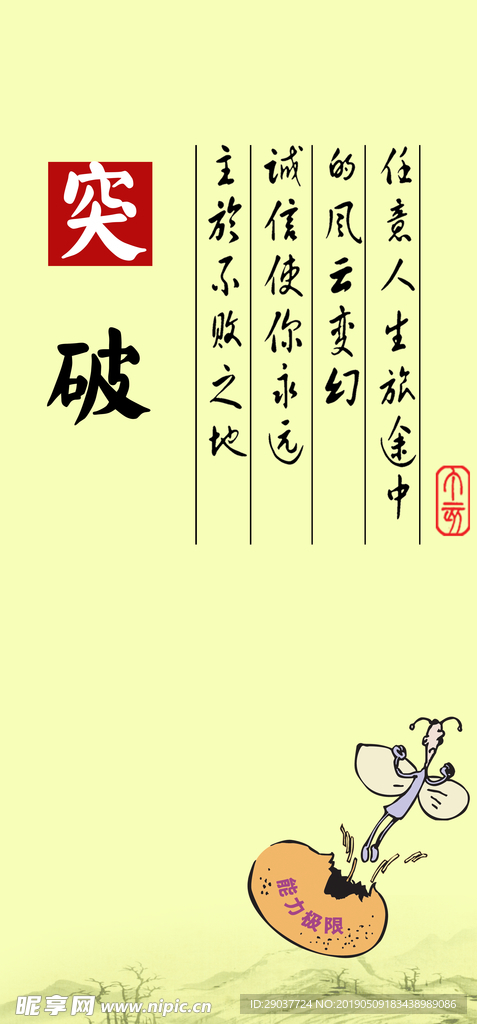 突
破
任意人生旅途中
的风云变幻
诚信使你永远
主於不败之地
能力极限
昵享网 www.nipic.cn
ID:29037724 NO:20190509183438989086